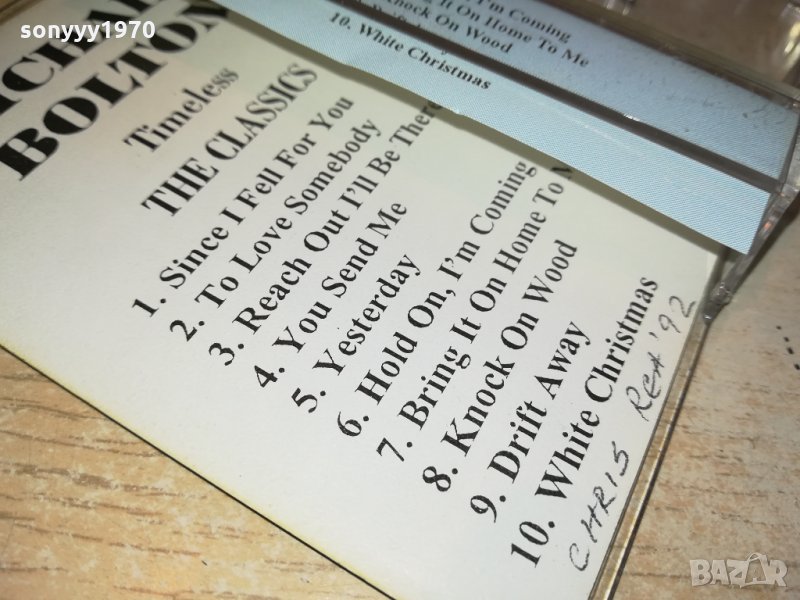 sonyyy1970
I'm Coming
It On Home To Me
Knock On Wood
10. White Christmas
BOLTON
Timeless
THE CLASSICS
1. Since I Fell For You
2. To Love Somebody
3. Reach Out I'll Be There
4. You Send Me
5. Yesterday
6. Hold On, I'm Coming
7. Bring It On Home To
8. Knock On Wood
9. Drift Away
10. White Christmas
CHRIS REA '92
BAZAR